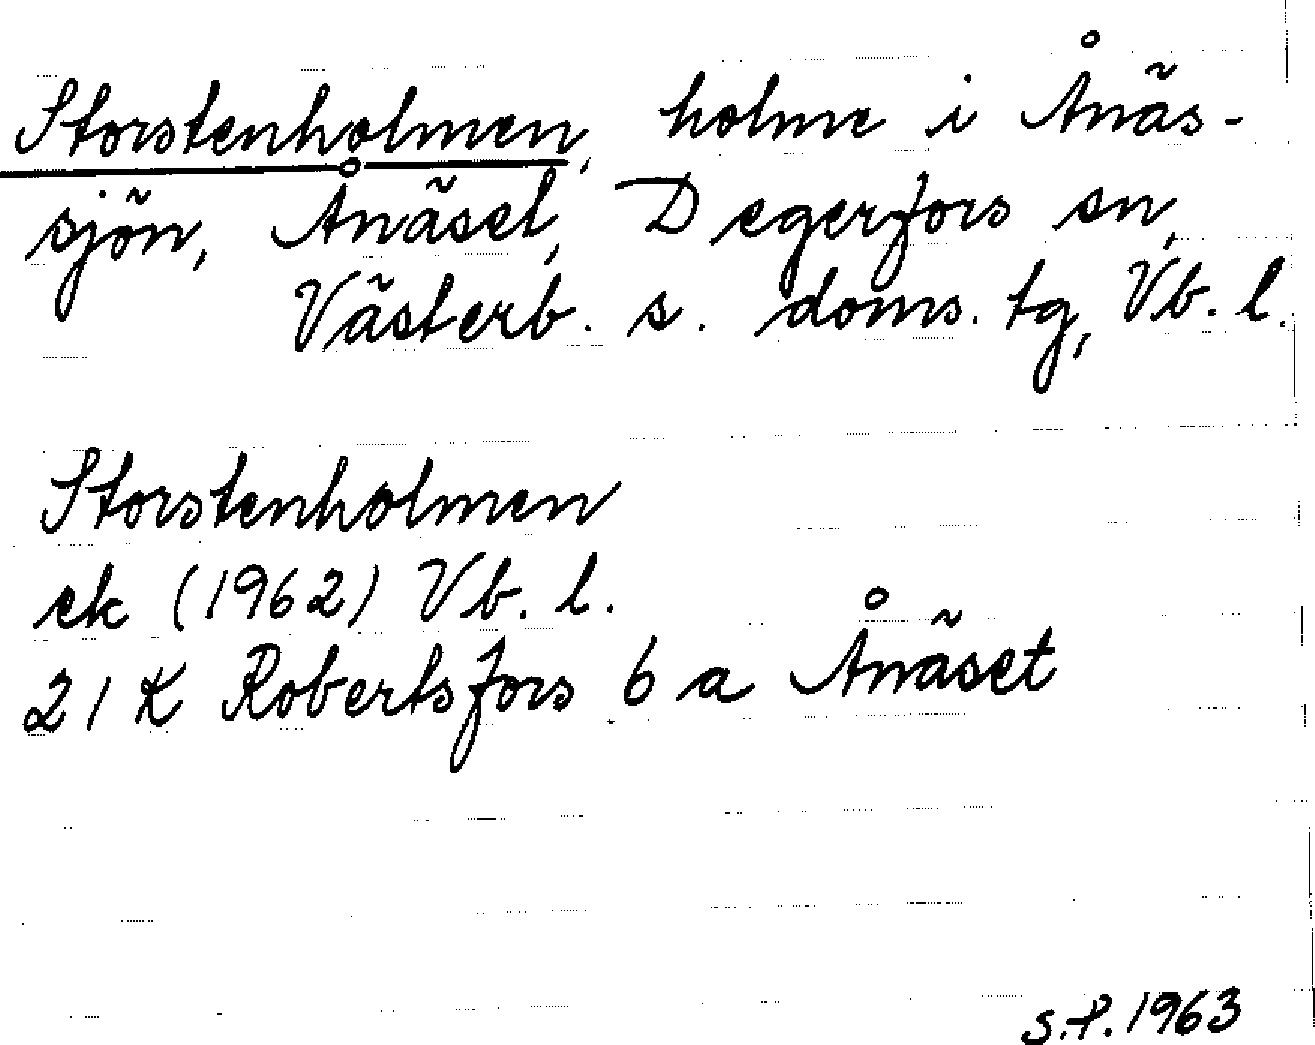 Storstenholmen, holme i Ånäs-
sjön, Ånäset, Degerfors sn,
Västerb. s. doms. tg, Vb. l.
Storstenholmen
ek (1962) Vb. l.
21 K Robertsfors 6 a Ånäset
S.P. 1963